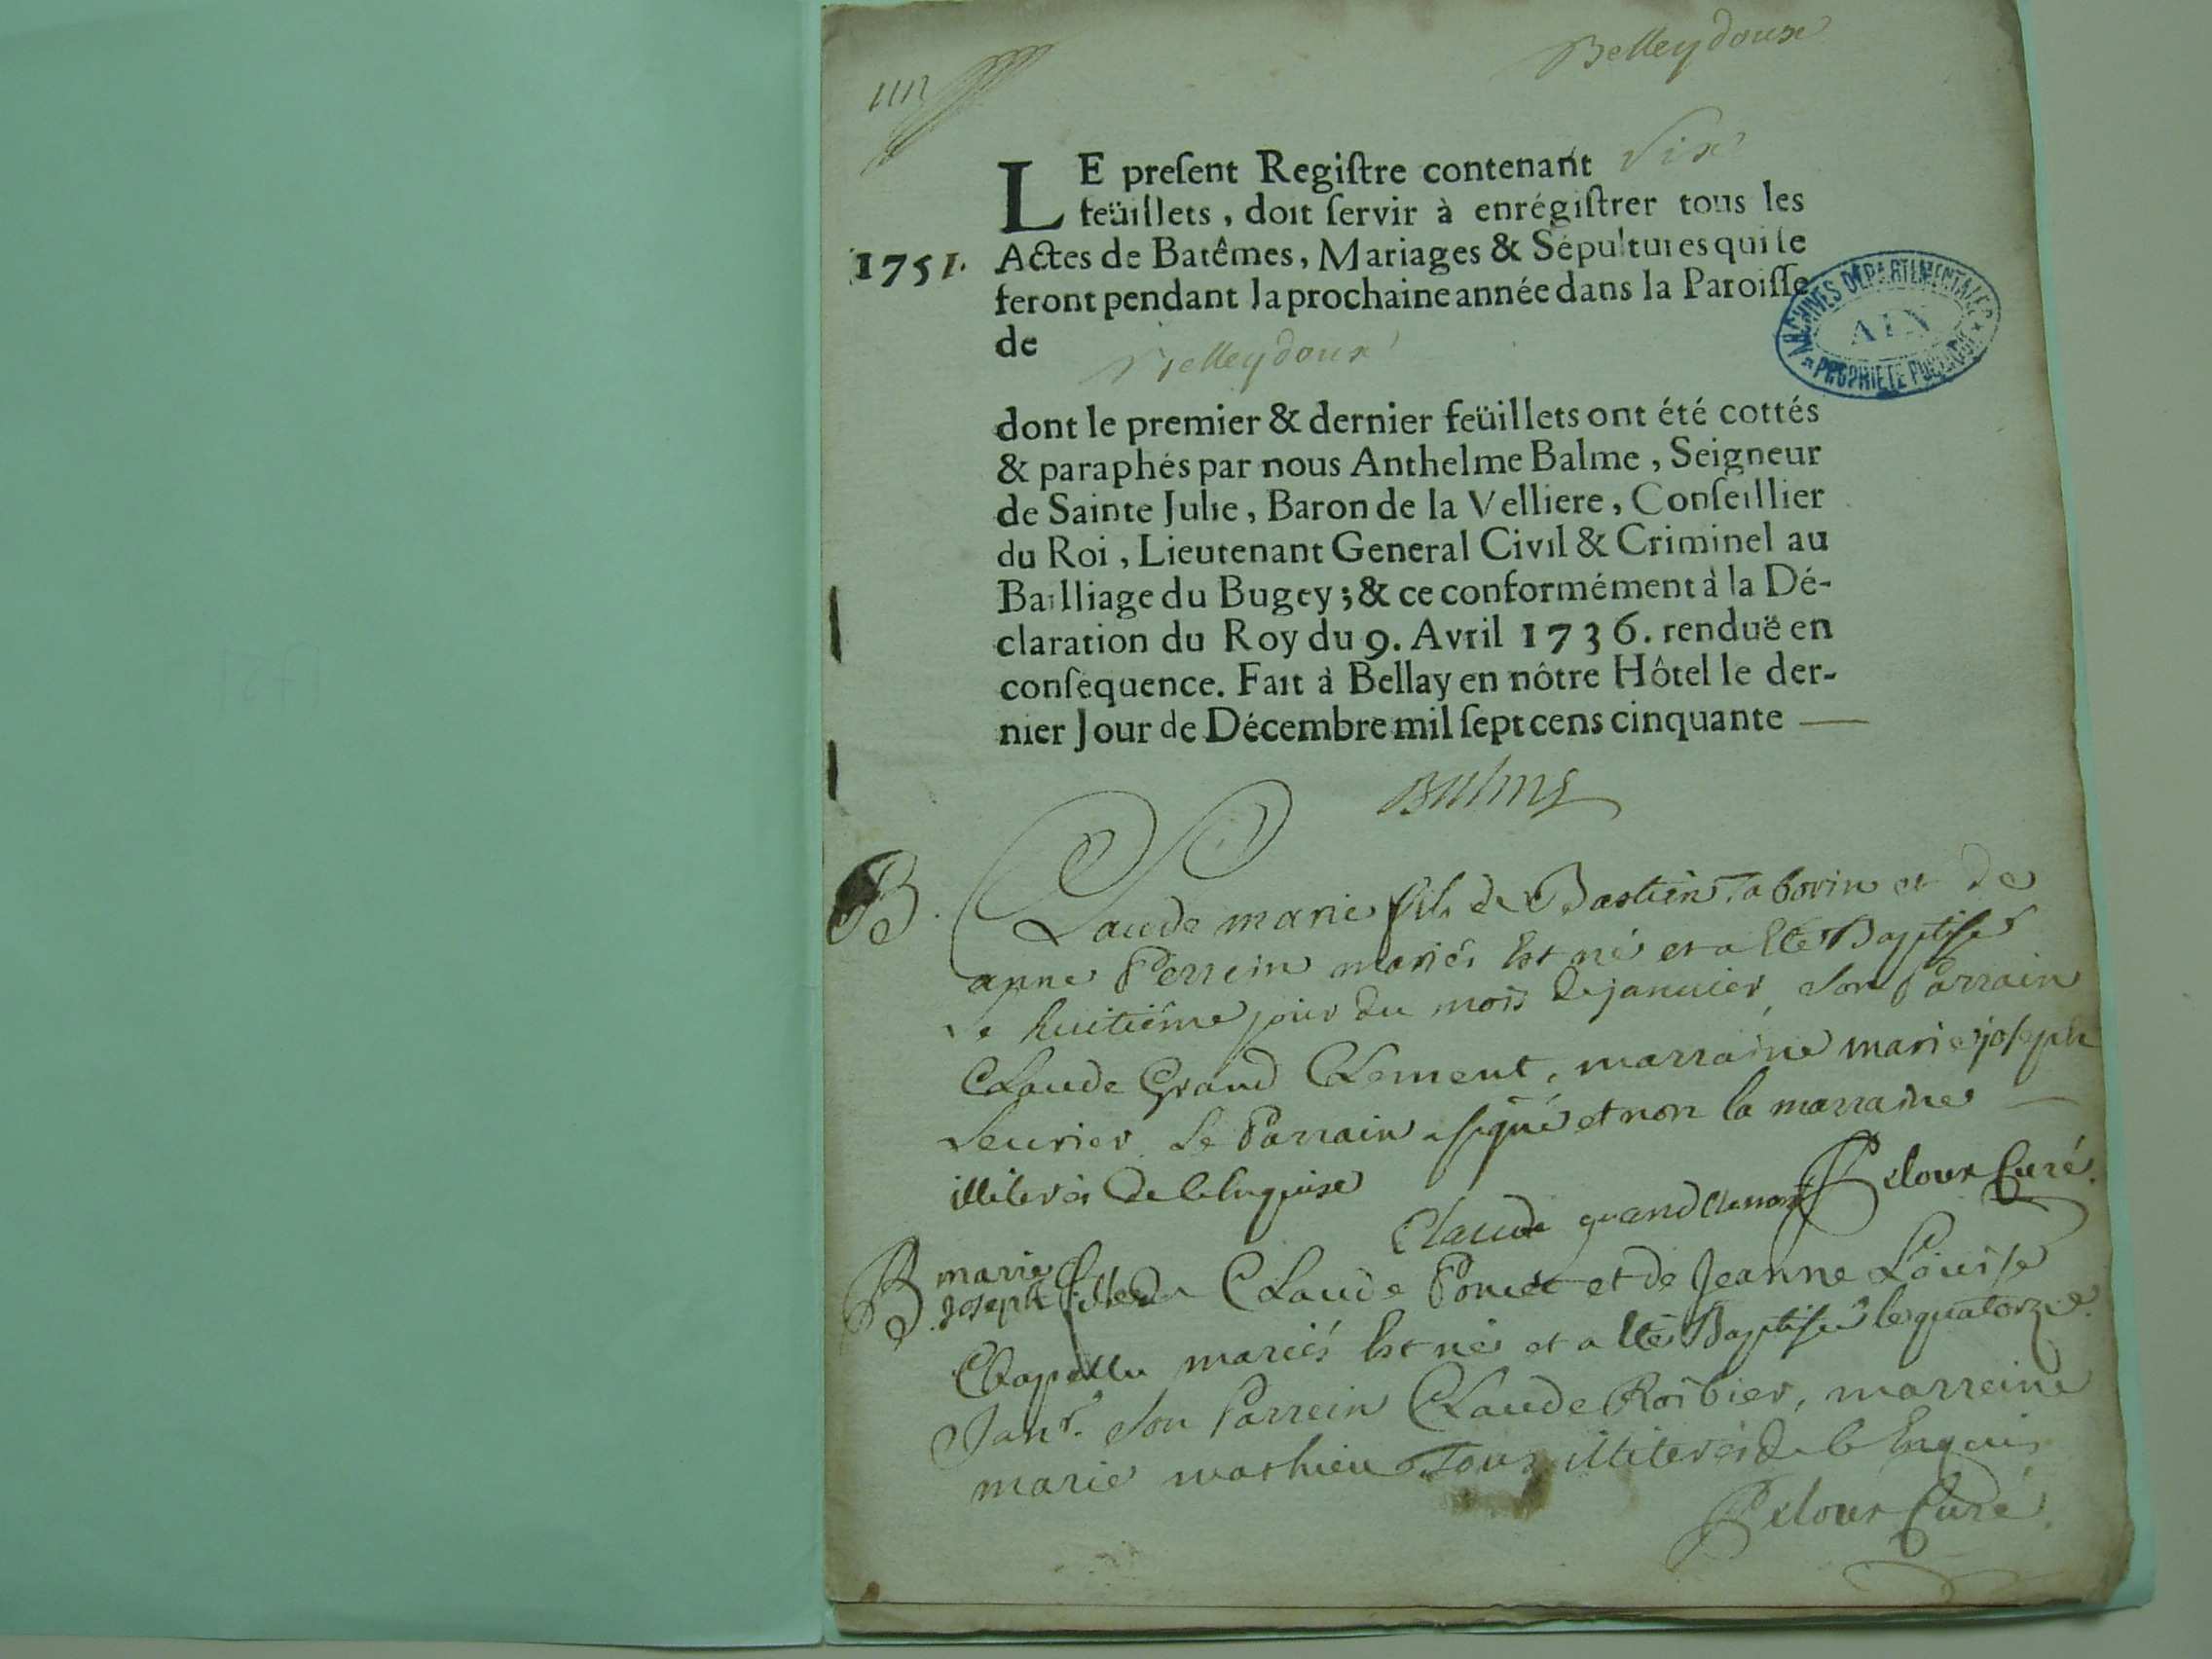 Belleydoux
LE preſent Regiſtre contenant Six
feüillets, doit ſervir à enrégiſtrer tous les
1751. Actes de Batêmes, Mariages & Sépultures qui ſe
feront pendant la prochaine année dans la Paroiſſe
de
Belleydoux
ARCHIVES DÉPARTEMENTALES
AIN
PROPRIÉTÉ PUBLIQUE
dont le premier & dernier feüillets ont été cottés
& paraphés par nous Anthelme Balme, Seigneur
de Sainte Julie, Baron de la Velliere, Conſeillier
du Roi, Lieutenant General Civil & Criminel au
Bailliage du Bugey; & ce conformément à la Dé-
claration du Roy du 9. Avril 1736. renduë en
conſequence. Fait à Bellay en nôtre Hôtel le der-
nier Jour de Décembre mil ſept cens cinquante —
Balme
B. Claude marie fils de Bastien Taborin et de
anne Perrein mariés Est né et a Eté Baptisé
le huitiême jour du mois de janvier, son Parrain
Claude Grand Clement, marraine marie joseph
Le Parrain a signé et non la marraine
illiterés de le Enquise
Claude grand clement Peloux Curé.
B marie
joseph fille de Claude Poncet et de Jeanne Louise
Chapellu mariés Est née et a Eté Baptisée le quatorze
Janr. son Parrein Claude Roibier, marreine
marie mathieu Tous illiterés de le Enquis
Peloux Curé.